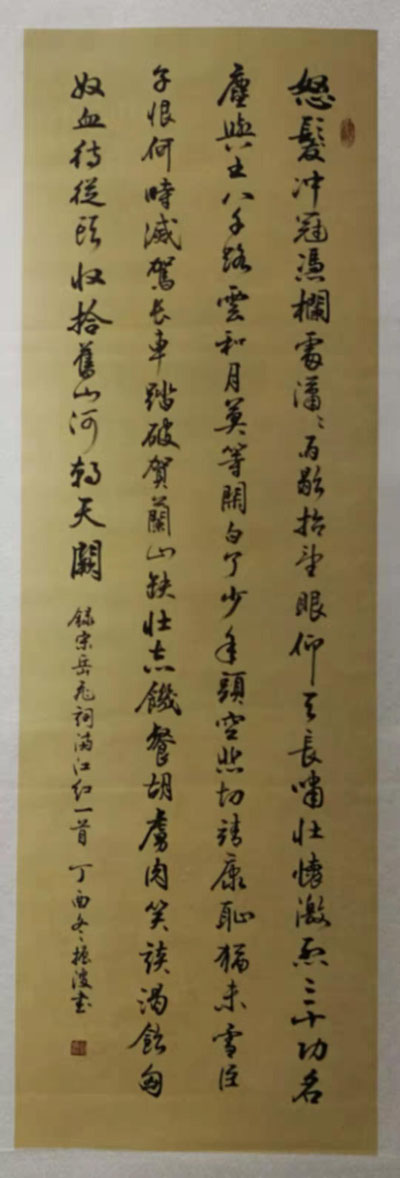 怒髮冲冠憑欄處瀟〻雨歇抬望眼仰天長嘯壯懷激烈三十功名
塵與土八千路雲和月莫等閑白了少年頭空悲切靖康恥猶未雪臣
子恨何時滅駕長車踏破賀蘭山缺壯志饑餐胡虜肉笑談渴飲匈
奴血待從頭收拾舊山河朝天闕
錄宋岳飛詞滿江紅一首 丁酉冬振波書